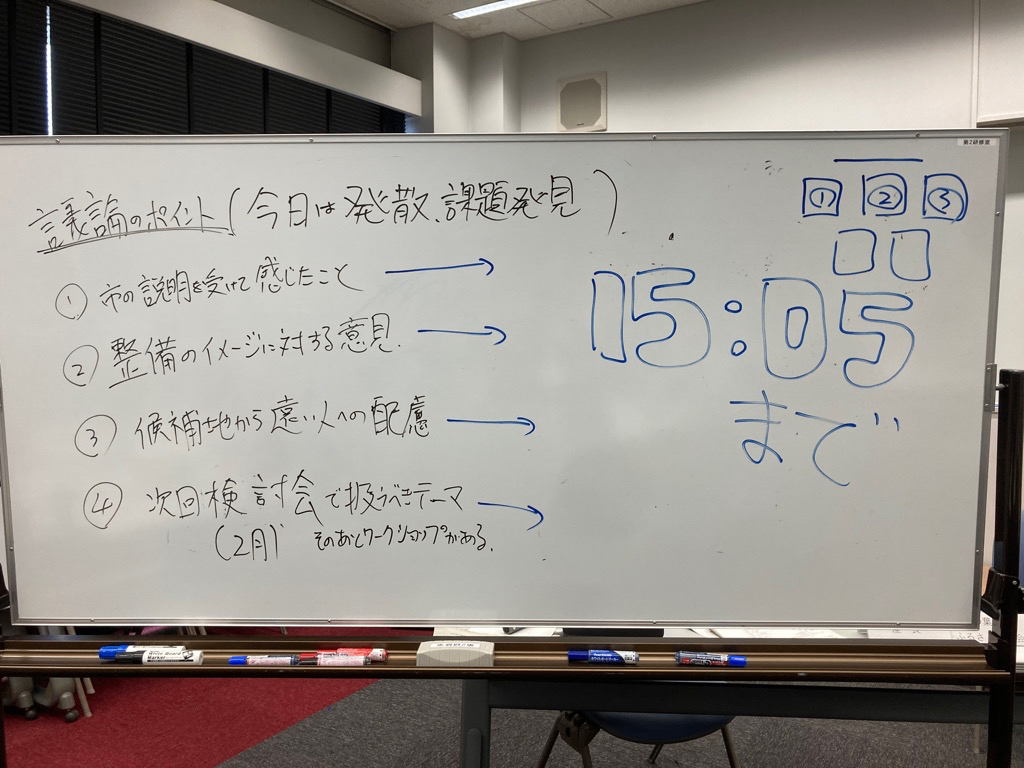 第2研修室
議論のポイント(今日は発散、課題発見)
① 市の説明を受けて感じたこと →
② 整備のイメージに対する意見. →
③ 候補地から遠い人への配慮 →
④ 次回検討会で扱うべきテーマ →
(2月) そのあとワークショップがある.
① ② ③
15:05
まで
White Board
Marker